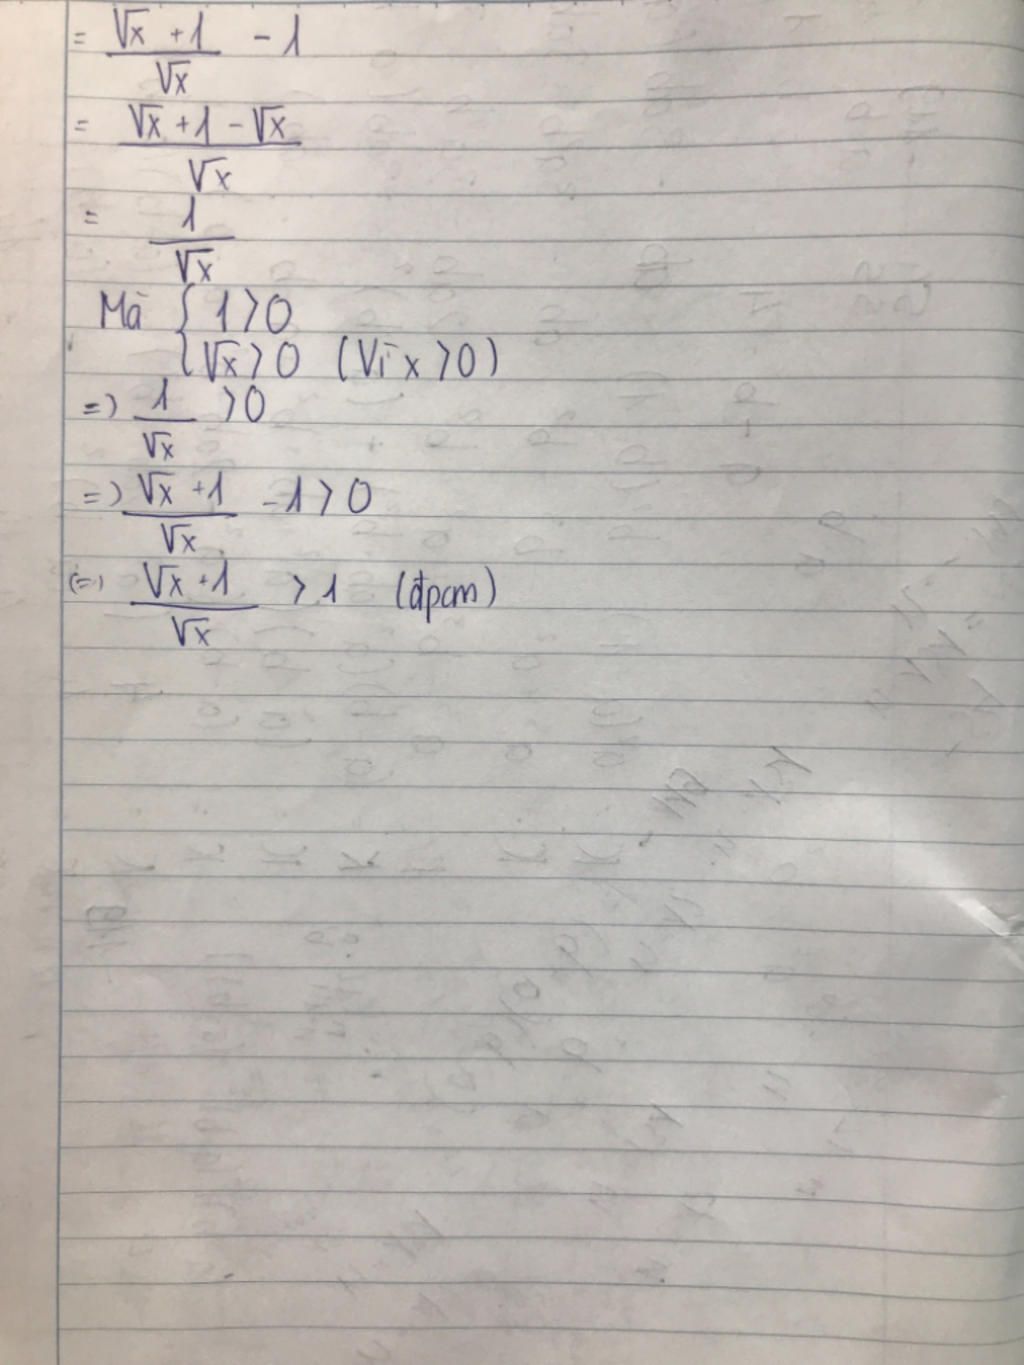 = (√x + 1)/√x - 1
= (√x + 1 - √x)/√x
= 1/√x
Mà { 1 > 0
{ √x > 0 (Vì x > 0)
=> 1/√x > 0
=> (√x + 1)/√x - 1 > 0
(=) (√x + 1)/√x > 1 (đpcm)